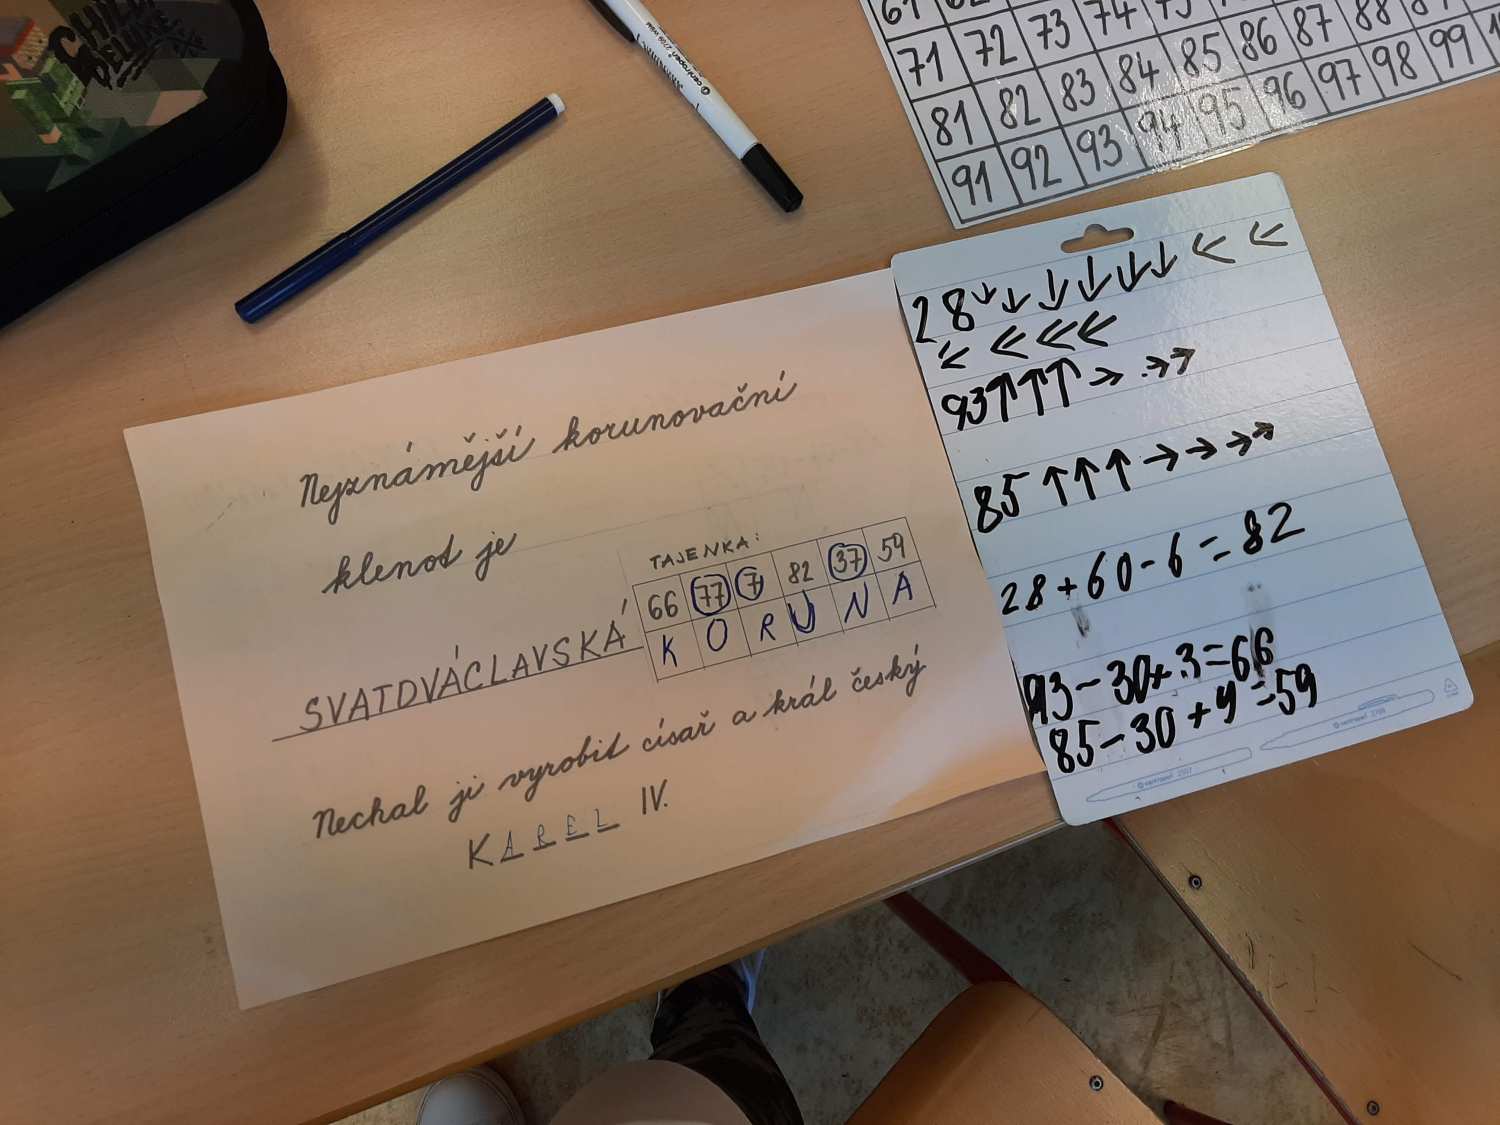 CHILI
DELUXE
centropen 2709
61 62
71 72 73 74 75
81 82 83 84 85 86 87 88 89
91 92 93 94 95 96 97 98 99
28 ↓ ↓ ↓ ↓ ↓ ↓ ← ←
← ← ← ←
93 ↑ ↑ ↑ → → →
85 ↑ ↑ ↑ → → → →
28 + 60 - 6 = 82
93 - 30 + 3 = 66
85 - 30 + 4 = 59
© centropen 2709
© centropen 2507
Nejznámější korunovační
klenot je
TAJENKA:
66 77 7 82 37 59
SVATOVÁCLAVSKÁ K O R U N A
Nechal ji vyrobit císař a král český
KAREL IV.